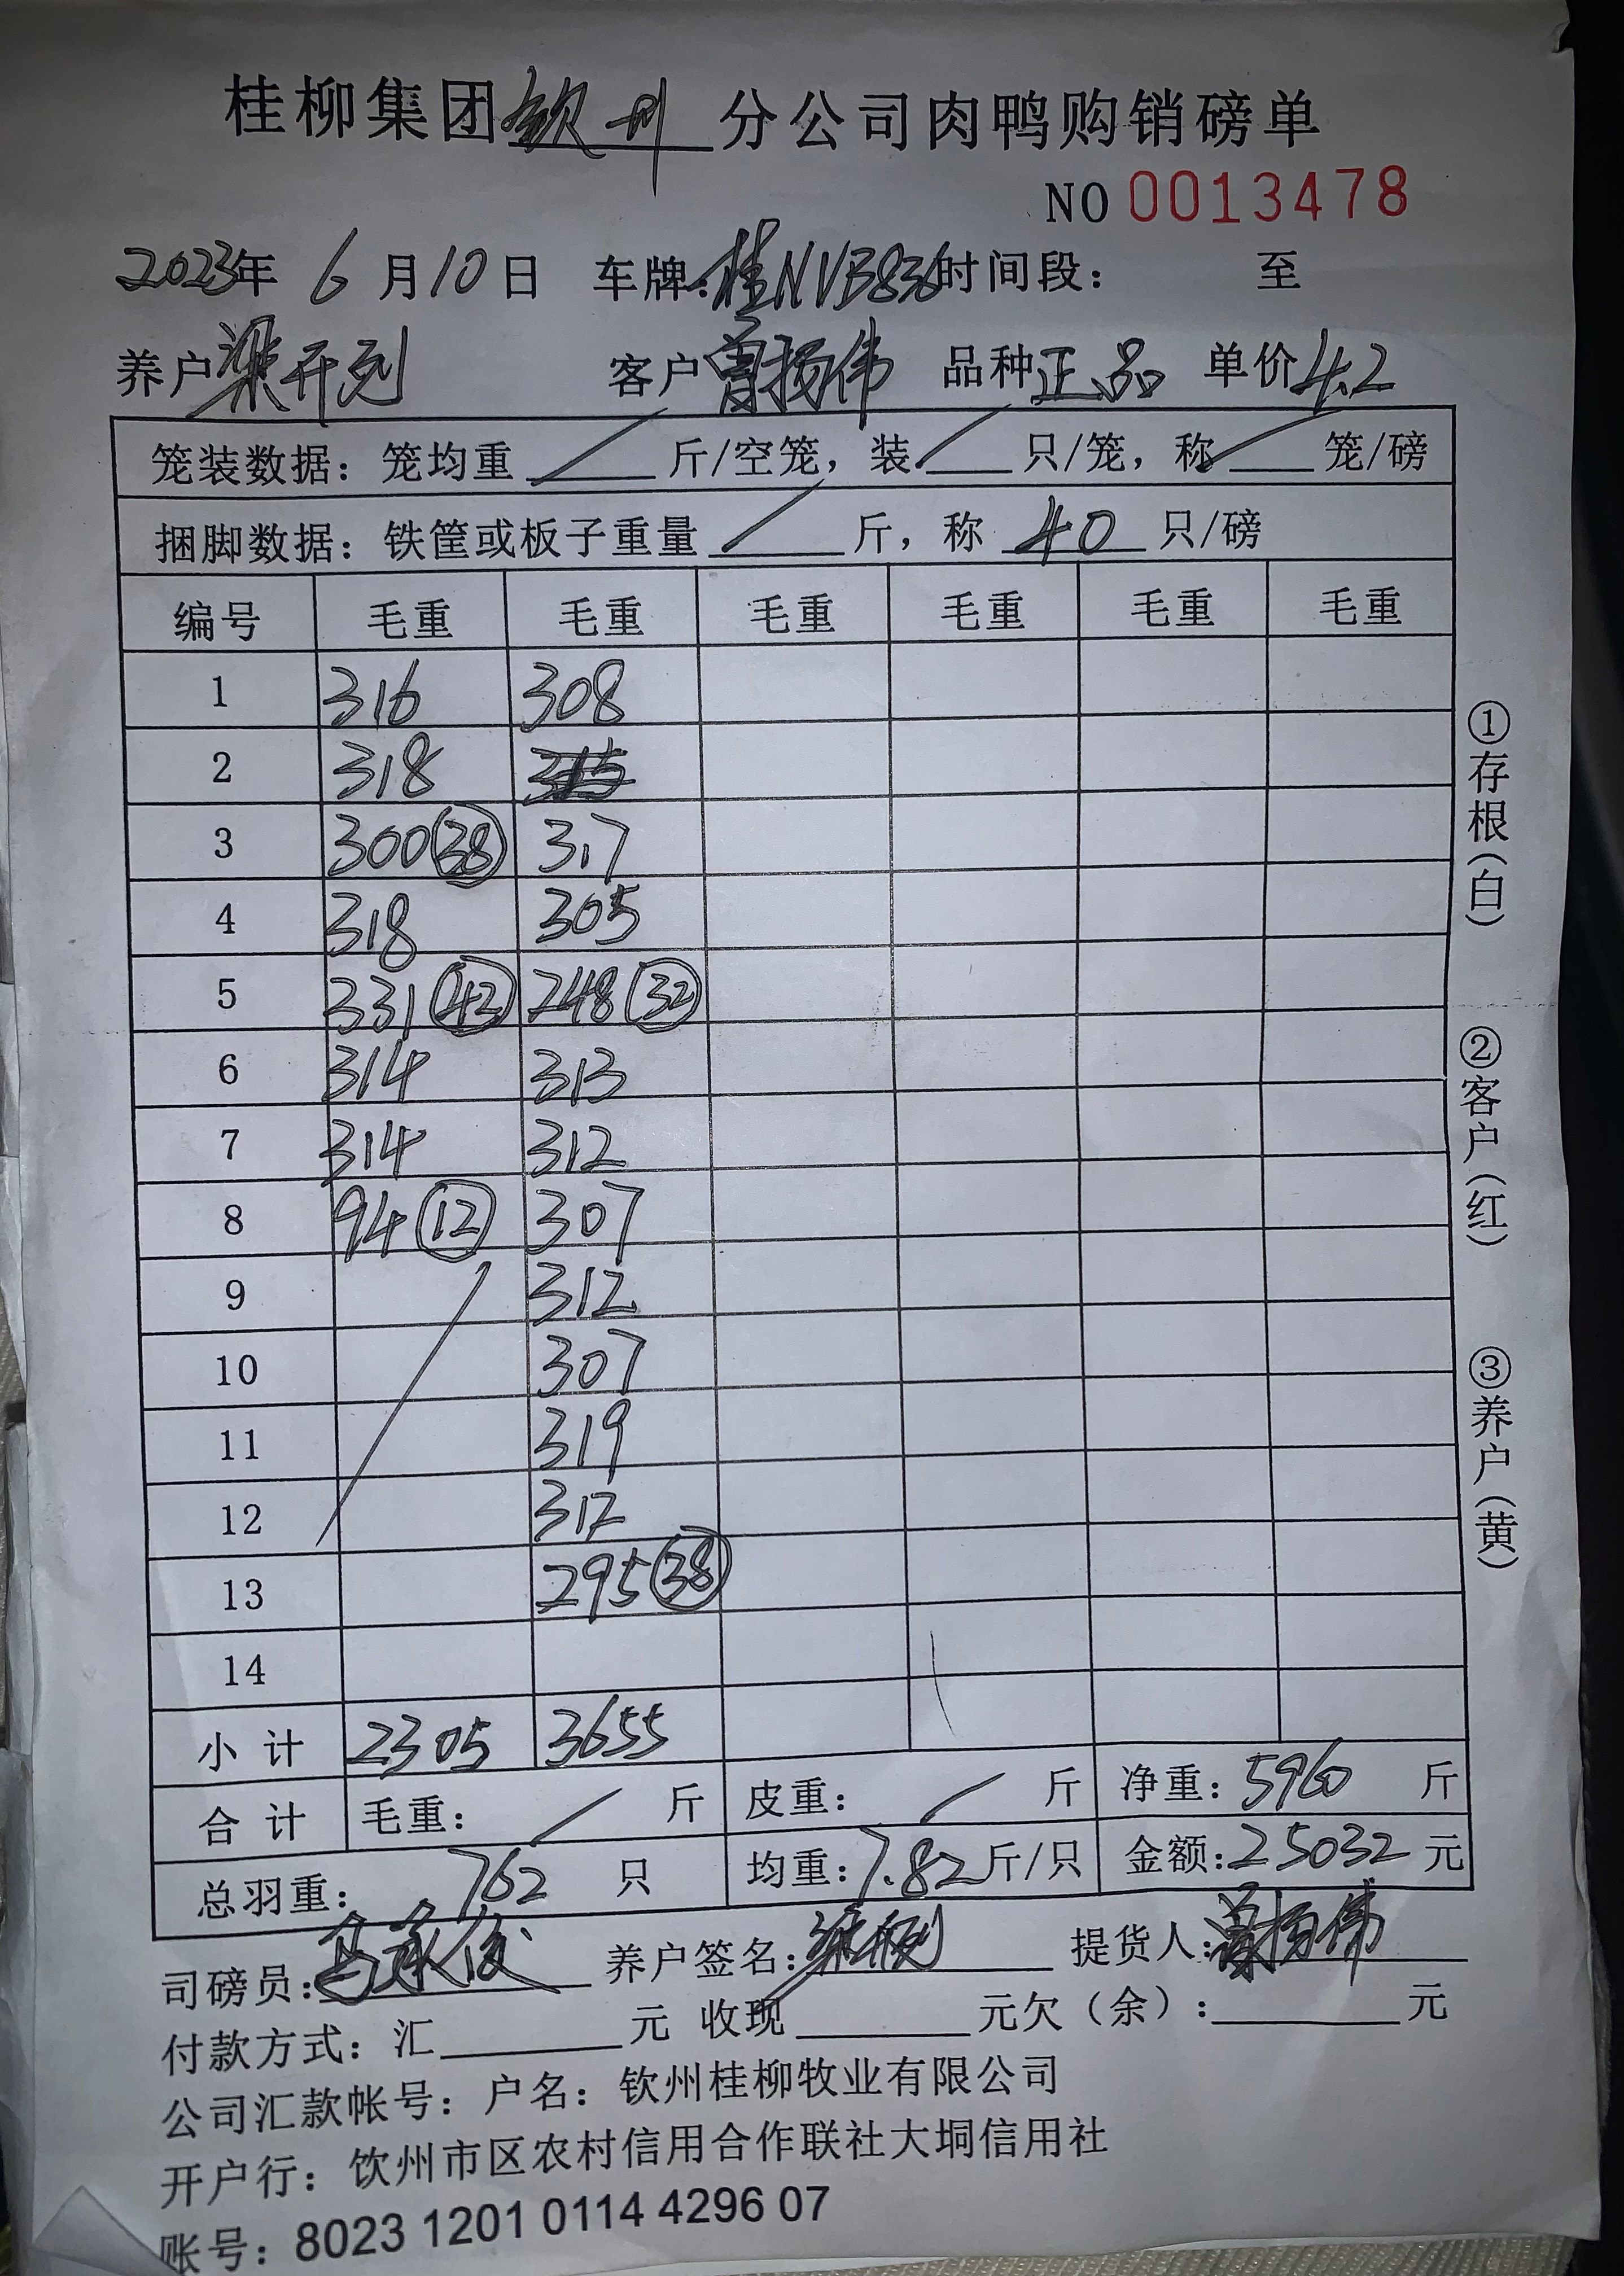 桂柳集团钦州分公司肉鸭购销磅单
NO 0013478
2023年 6月10日 车牌:桂NVB836时间段: 至
养户梁开列 客户曾扬伟 品种正品 单价4.2
笼装数据: 笼均重 / 斤/空笼, 装 / 只/笼, 称 / 笼/磅
捆脚数据: 铁筐或板子重量 / 斤, 称 40 只/磅
编号 毛重 毛重 毛重 毛重 毛重 毛重
1 316 308
2 318
3 300 38 317
4 318 305
5 331 42 248 32
6 314 313
7 314 312
8 94 12 307
9 312
10 307
11 319
12 312
13 295 38
14
小计 2305 3655
合计 毛重: / 斤 皮重: / 斤 净重: 5960 斤
总羽重: 762 只 均重: 7.82斤/只 金额: 25032 元
司磅员: 养户签名: 提货人:曾扬伟
付款方式: 汇 元 收现 元欠(余): 元
公司汇款帐号: 户名: 钦州桂柳牧业有限公司
开户行: 钦州市区农村信用合作联社大垌信用社
账号: 8023 1201 0114 4296 07
①存根(白)
②客户(红)
③养户(黄)